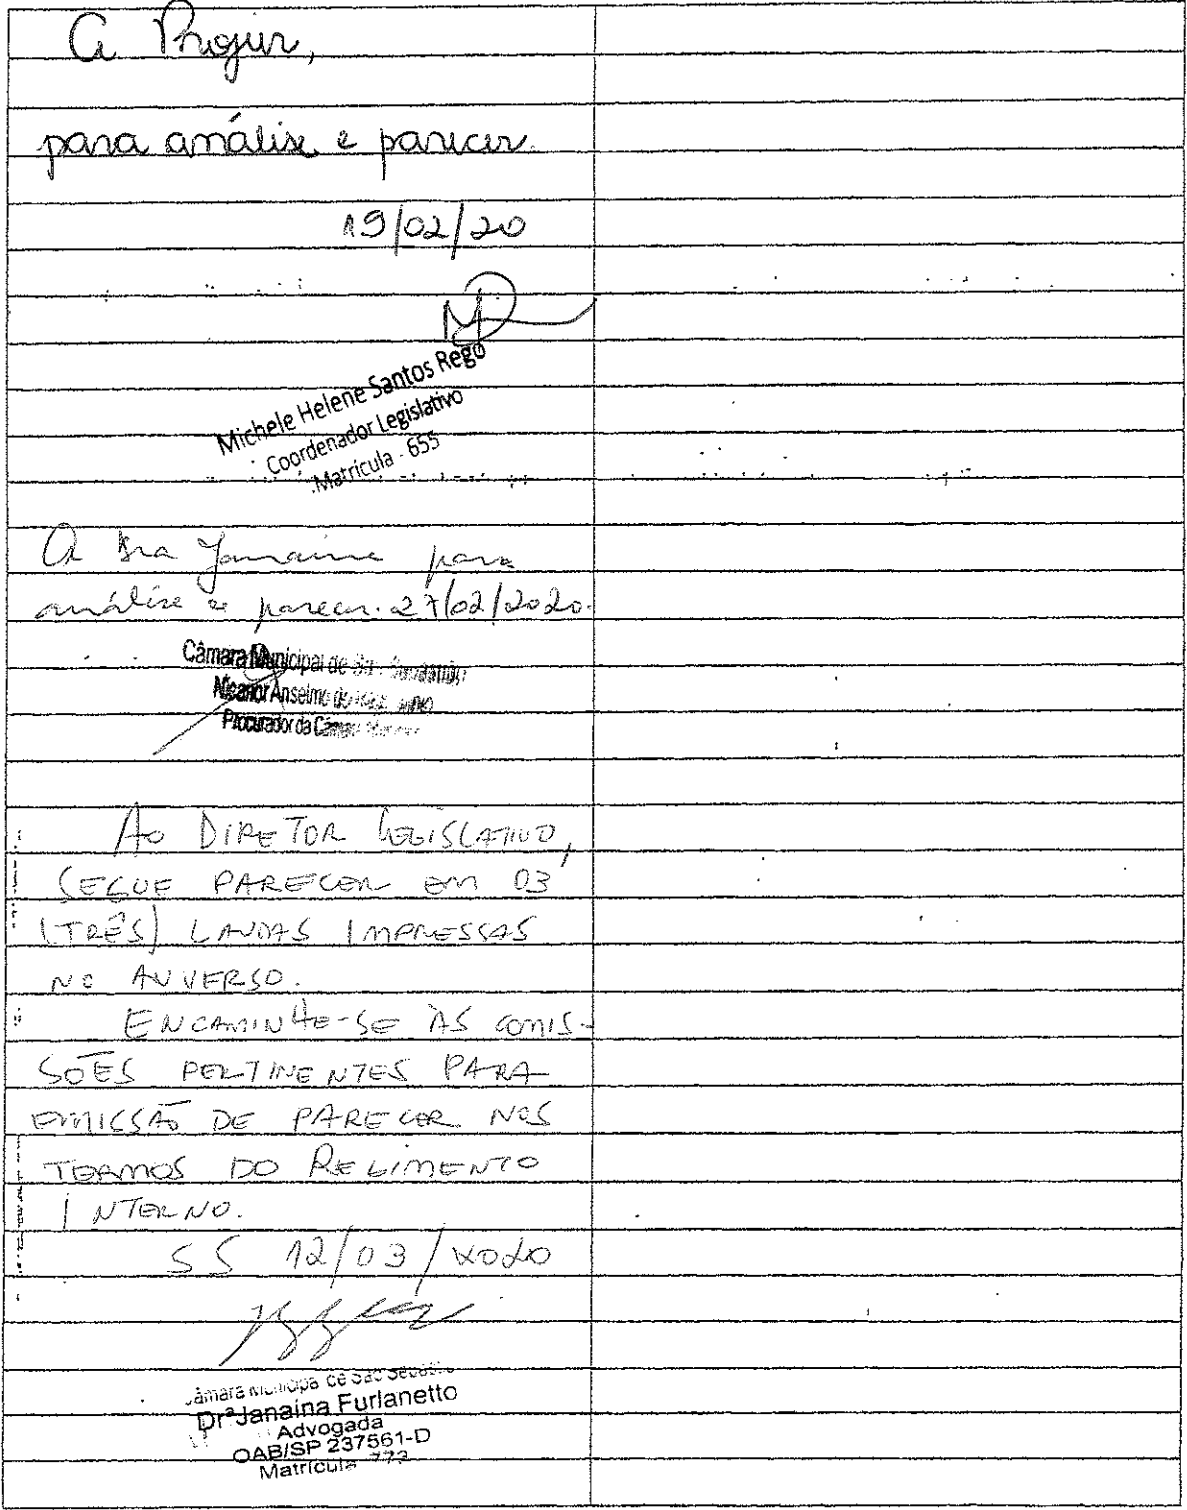 A Projur,
para análise e parecer.
19/02/20
Michele Helene Santos Rego
Coordenador Legislativo
Matrícula - 655
A Dra Janaina para
análise e parecer. 27/02/2020.
Câmara Municipal de São Sebastião
Nicanor Anselmo do
Procurador da Câmara
AO DIRETOR LEGISLATIVO,
SEGUE PARECER EM 03
(TRÊS) LAUDAS IMPRESSAS
NO ANVERSO.
ENCAMINHE-SE ÀS COMIS-
SÕES PERTINENTES PARA
EMISSÃO DE PARECER NOS
TERMOS DO REGIMENTO
INTERNO.
SS 12/03/2020
Câmara Municipal de São Sebastião
Drª Janaina Furlanetto
Advogada
OAB/SP 237561-D
Matrícula